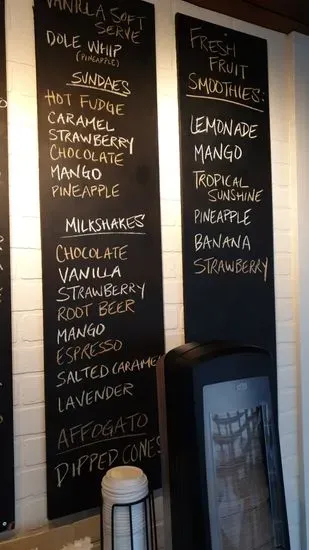 VANILLA SOFT
SERVE
DOLE WHIP
(PINEAPPLE)
SUNDAES
HOT FUDGE
CARAMEL
STRAWBERRY
CHOCOLATE
MANGO
PINEAPPLE
MILKSHAKES
CHOCOLATE
VANILLA
STRAWBERRY
ROOT BEER
MANGO
ESPRESSO
SALTED CARAMEL
LAVENDER
AFFOGATO
DIPPED CONES
FRESH
FRUIT
SMOOTHIES:
LEMONADE
MANGO
TROPICAL
SUNSHINE
PINEAPPLE
BANANA
STRAWBERRY